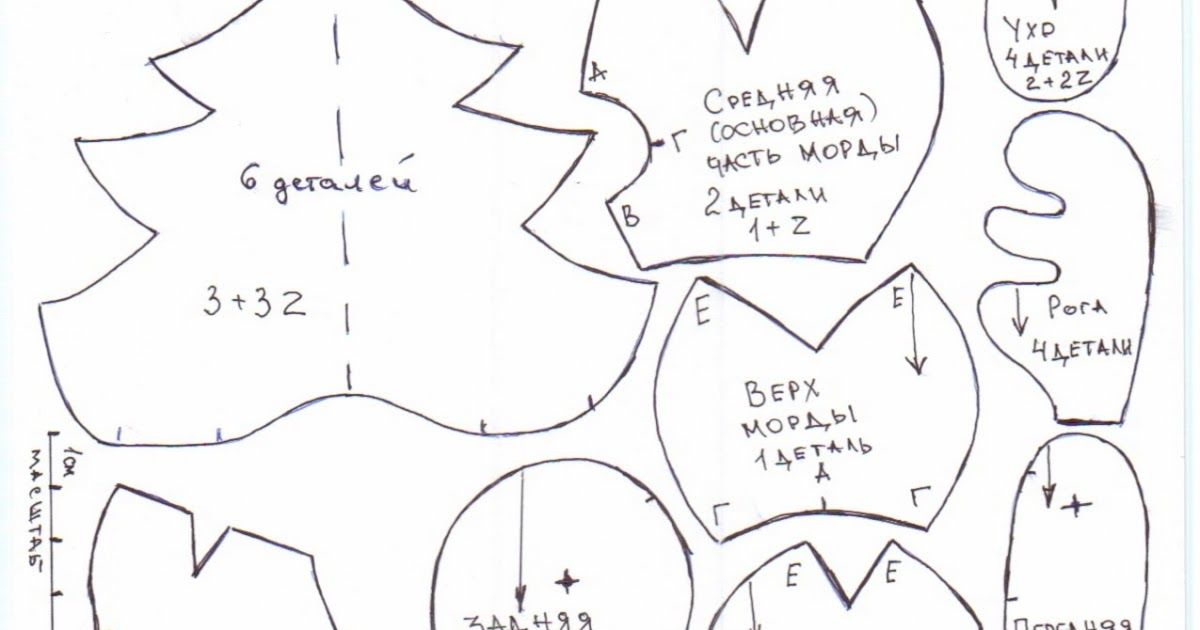 6 деталей
3+3Z
А
Г
В
СРЕДНЯЯ
(ОСНОВНАЯ)
ЧАСТЬ МОРДЫ
2 ДЕТАЛИ
1+Z
УХО
4 ДЕТАЛИ
2+2Z
РОГА
4 ДЕТАЛИ
Е
Е
ВЕРХ
МОРДЫ
1 ДЕТАЛЬ
А
Г
Г
1см
МАСШТАБ
ЗАДНЯЯ
Е
Е
ПЕРЕДНЯЯ